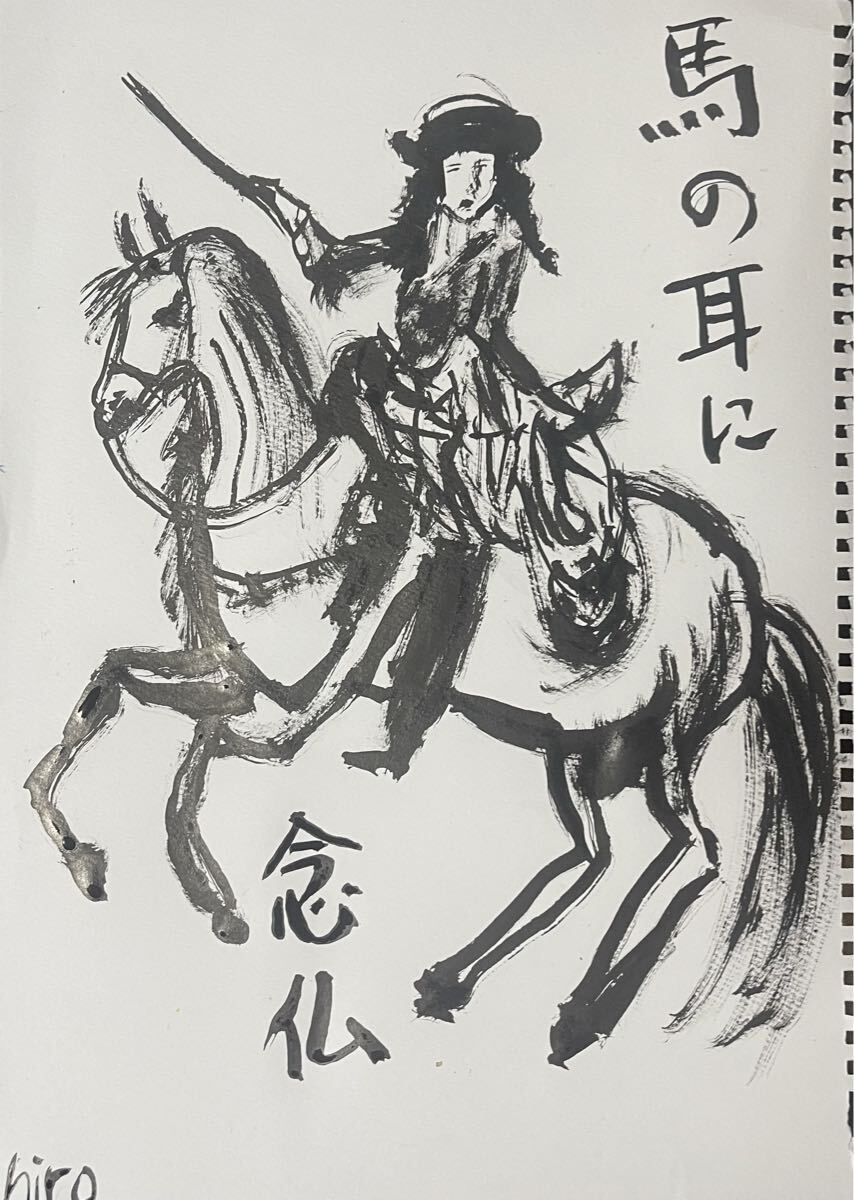 馬の耳に
念仏
hiro